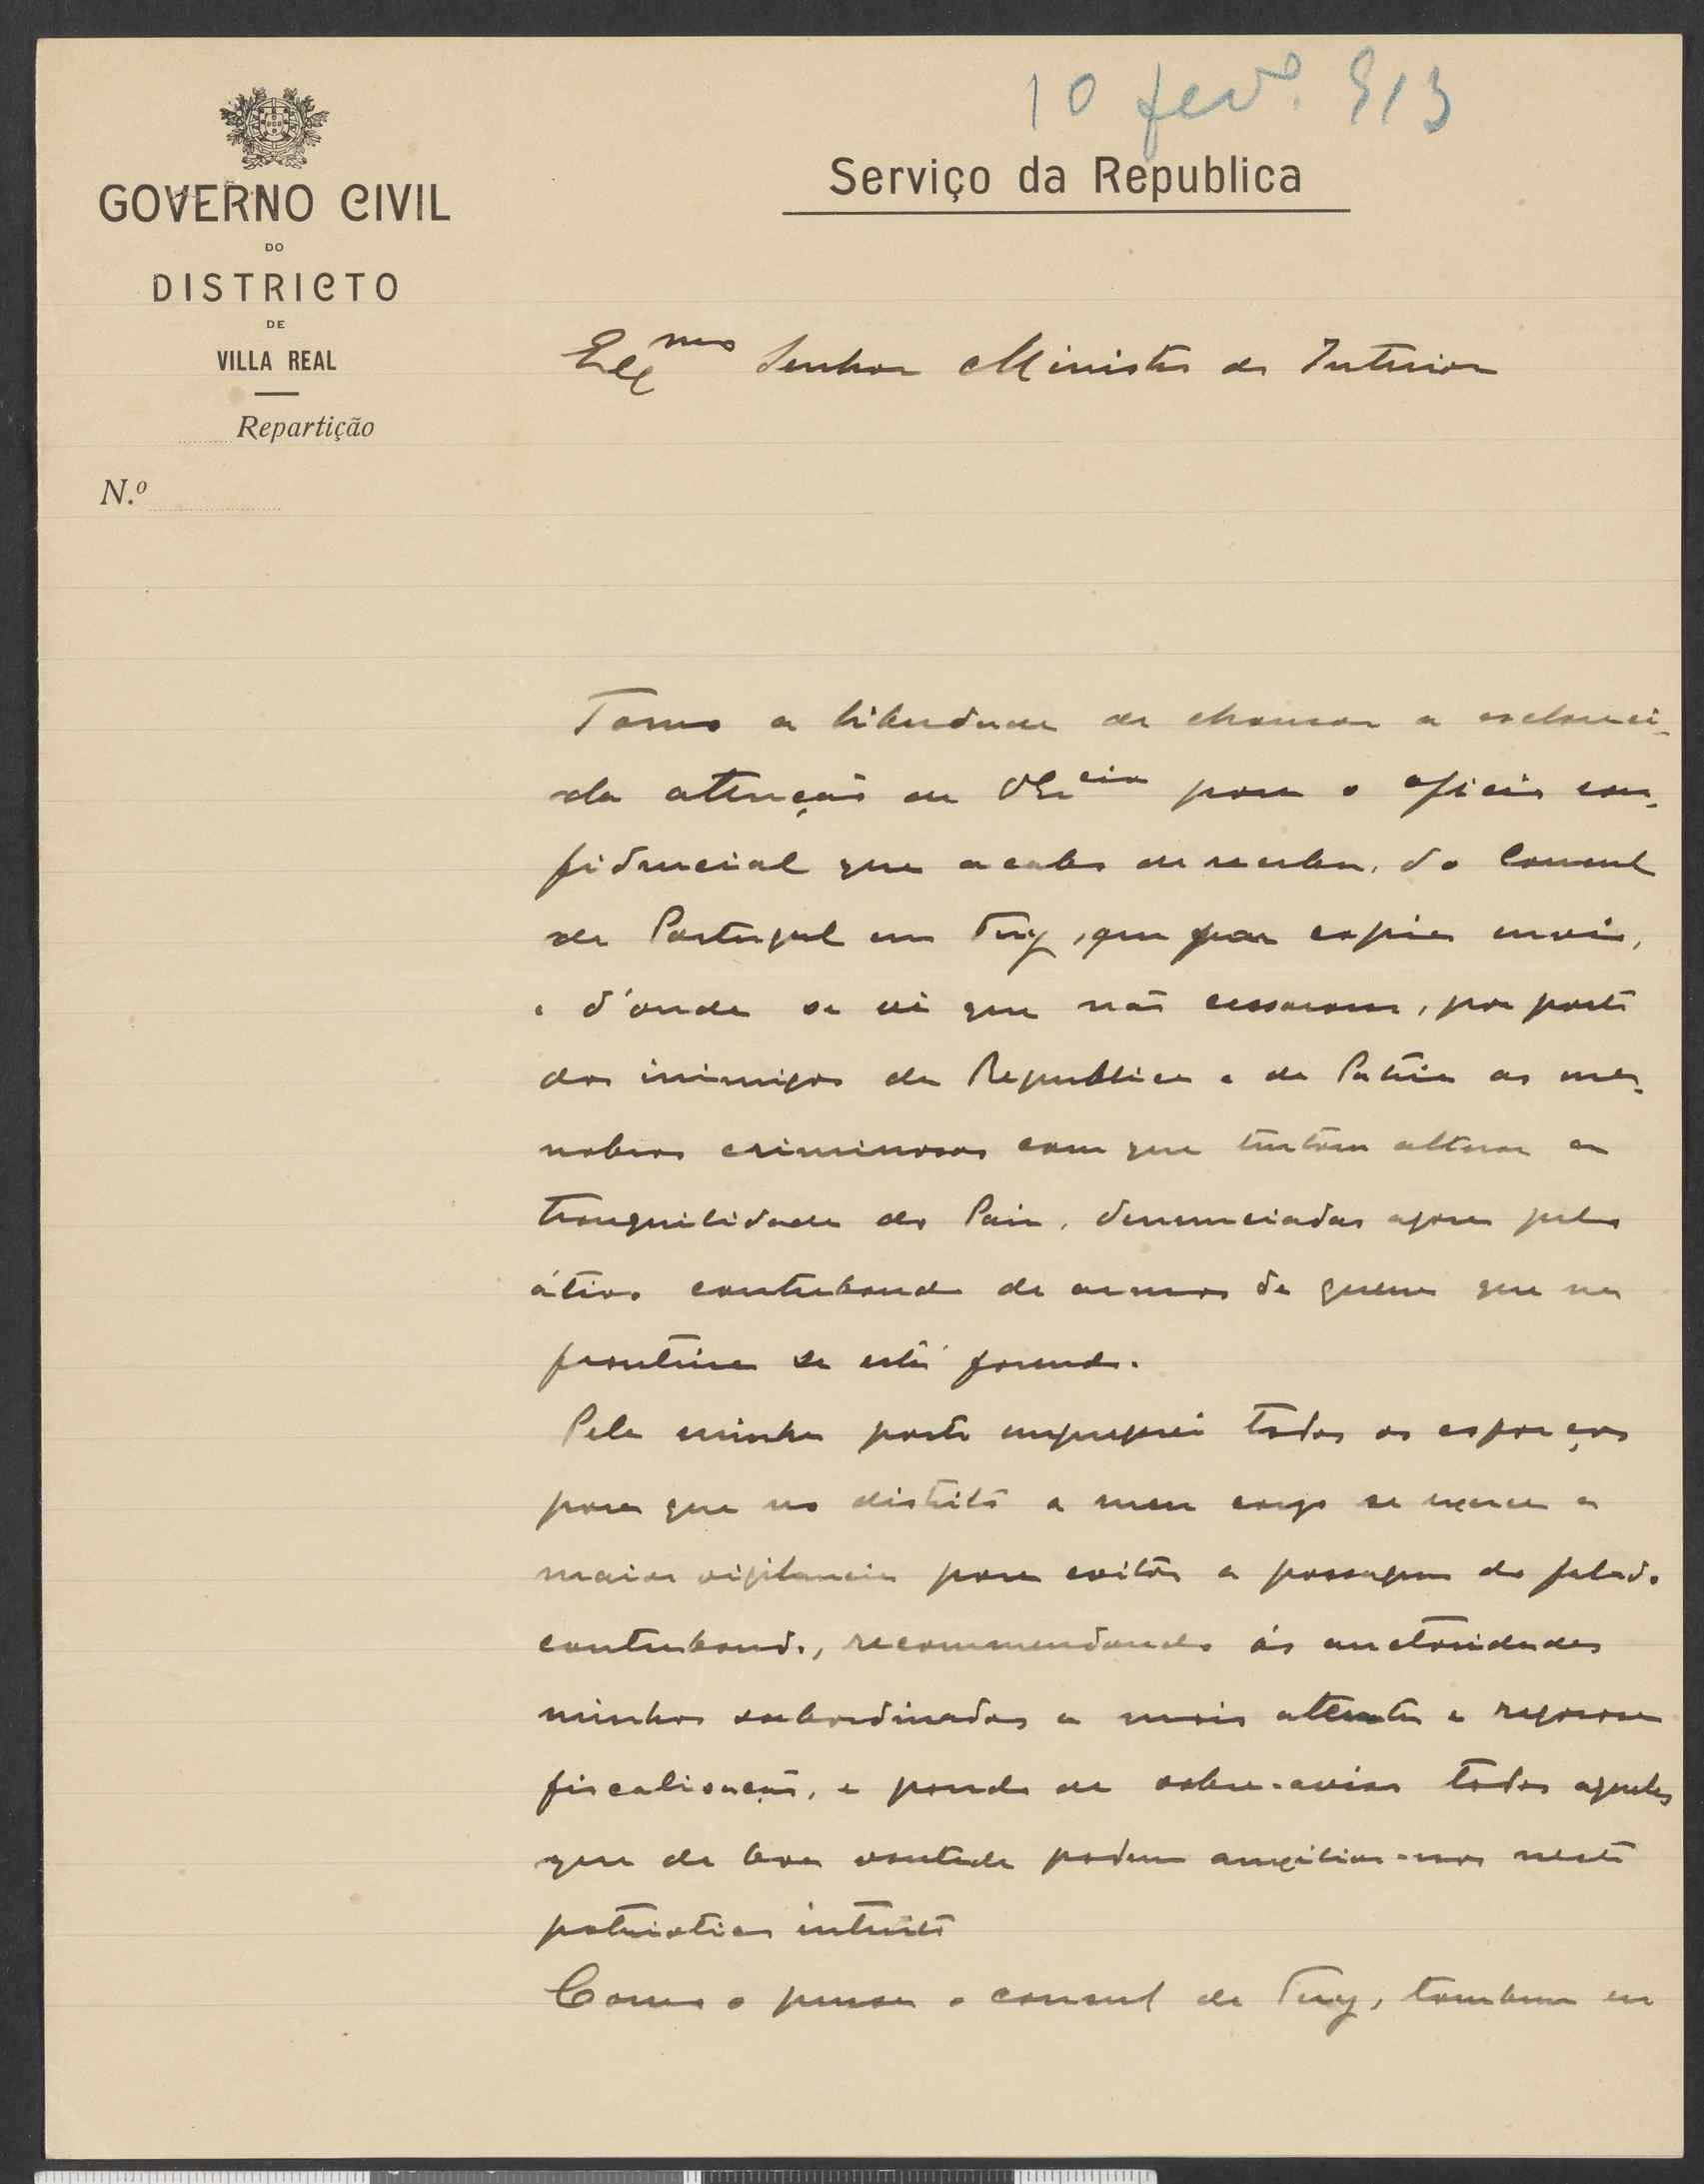 10 fev.º 913
GOVERNO CIVIL
DO
DISTRICTO
DE
VILLA REAL
Repartição
N.º
Serviço da Republica
Exmo Senhor Ministro do Interior
Tomo a liberdade de chamar a esclareci-
da atenção de VExcia para o oficio con-
fidencial que acabo de receber, do Consul
de Portugal em Tuy, que por copia envio,
e d'onde se vê que não cessaram, por parte
dos inimigos da Republica e da Patria as ma-
nobras criminosas com que tentam alterar a
tranquilidade do Paiz, denunciadas agora pelo
átivo contrabando de armas de guerra que na
fronteira se está fazendo.
Pela minha parte empreguei todos os esforços
para que no distrito a meu cargo se exerça a
maior vigilancia para evitar a passagem do falado
contrabando, recommendando ás auctoridades
minhas subordinadas a mais atenta e rigorosa
fiscalisação, e pondo de sobre-aviso todos aqueles
que de boa vontade podem auxiliar-nos neste
patriotico intuito
Como o pensa o consul de Tuy, tambem eu